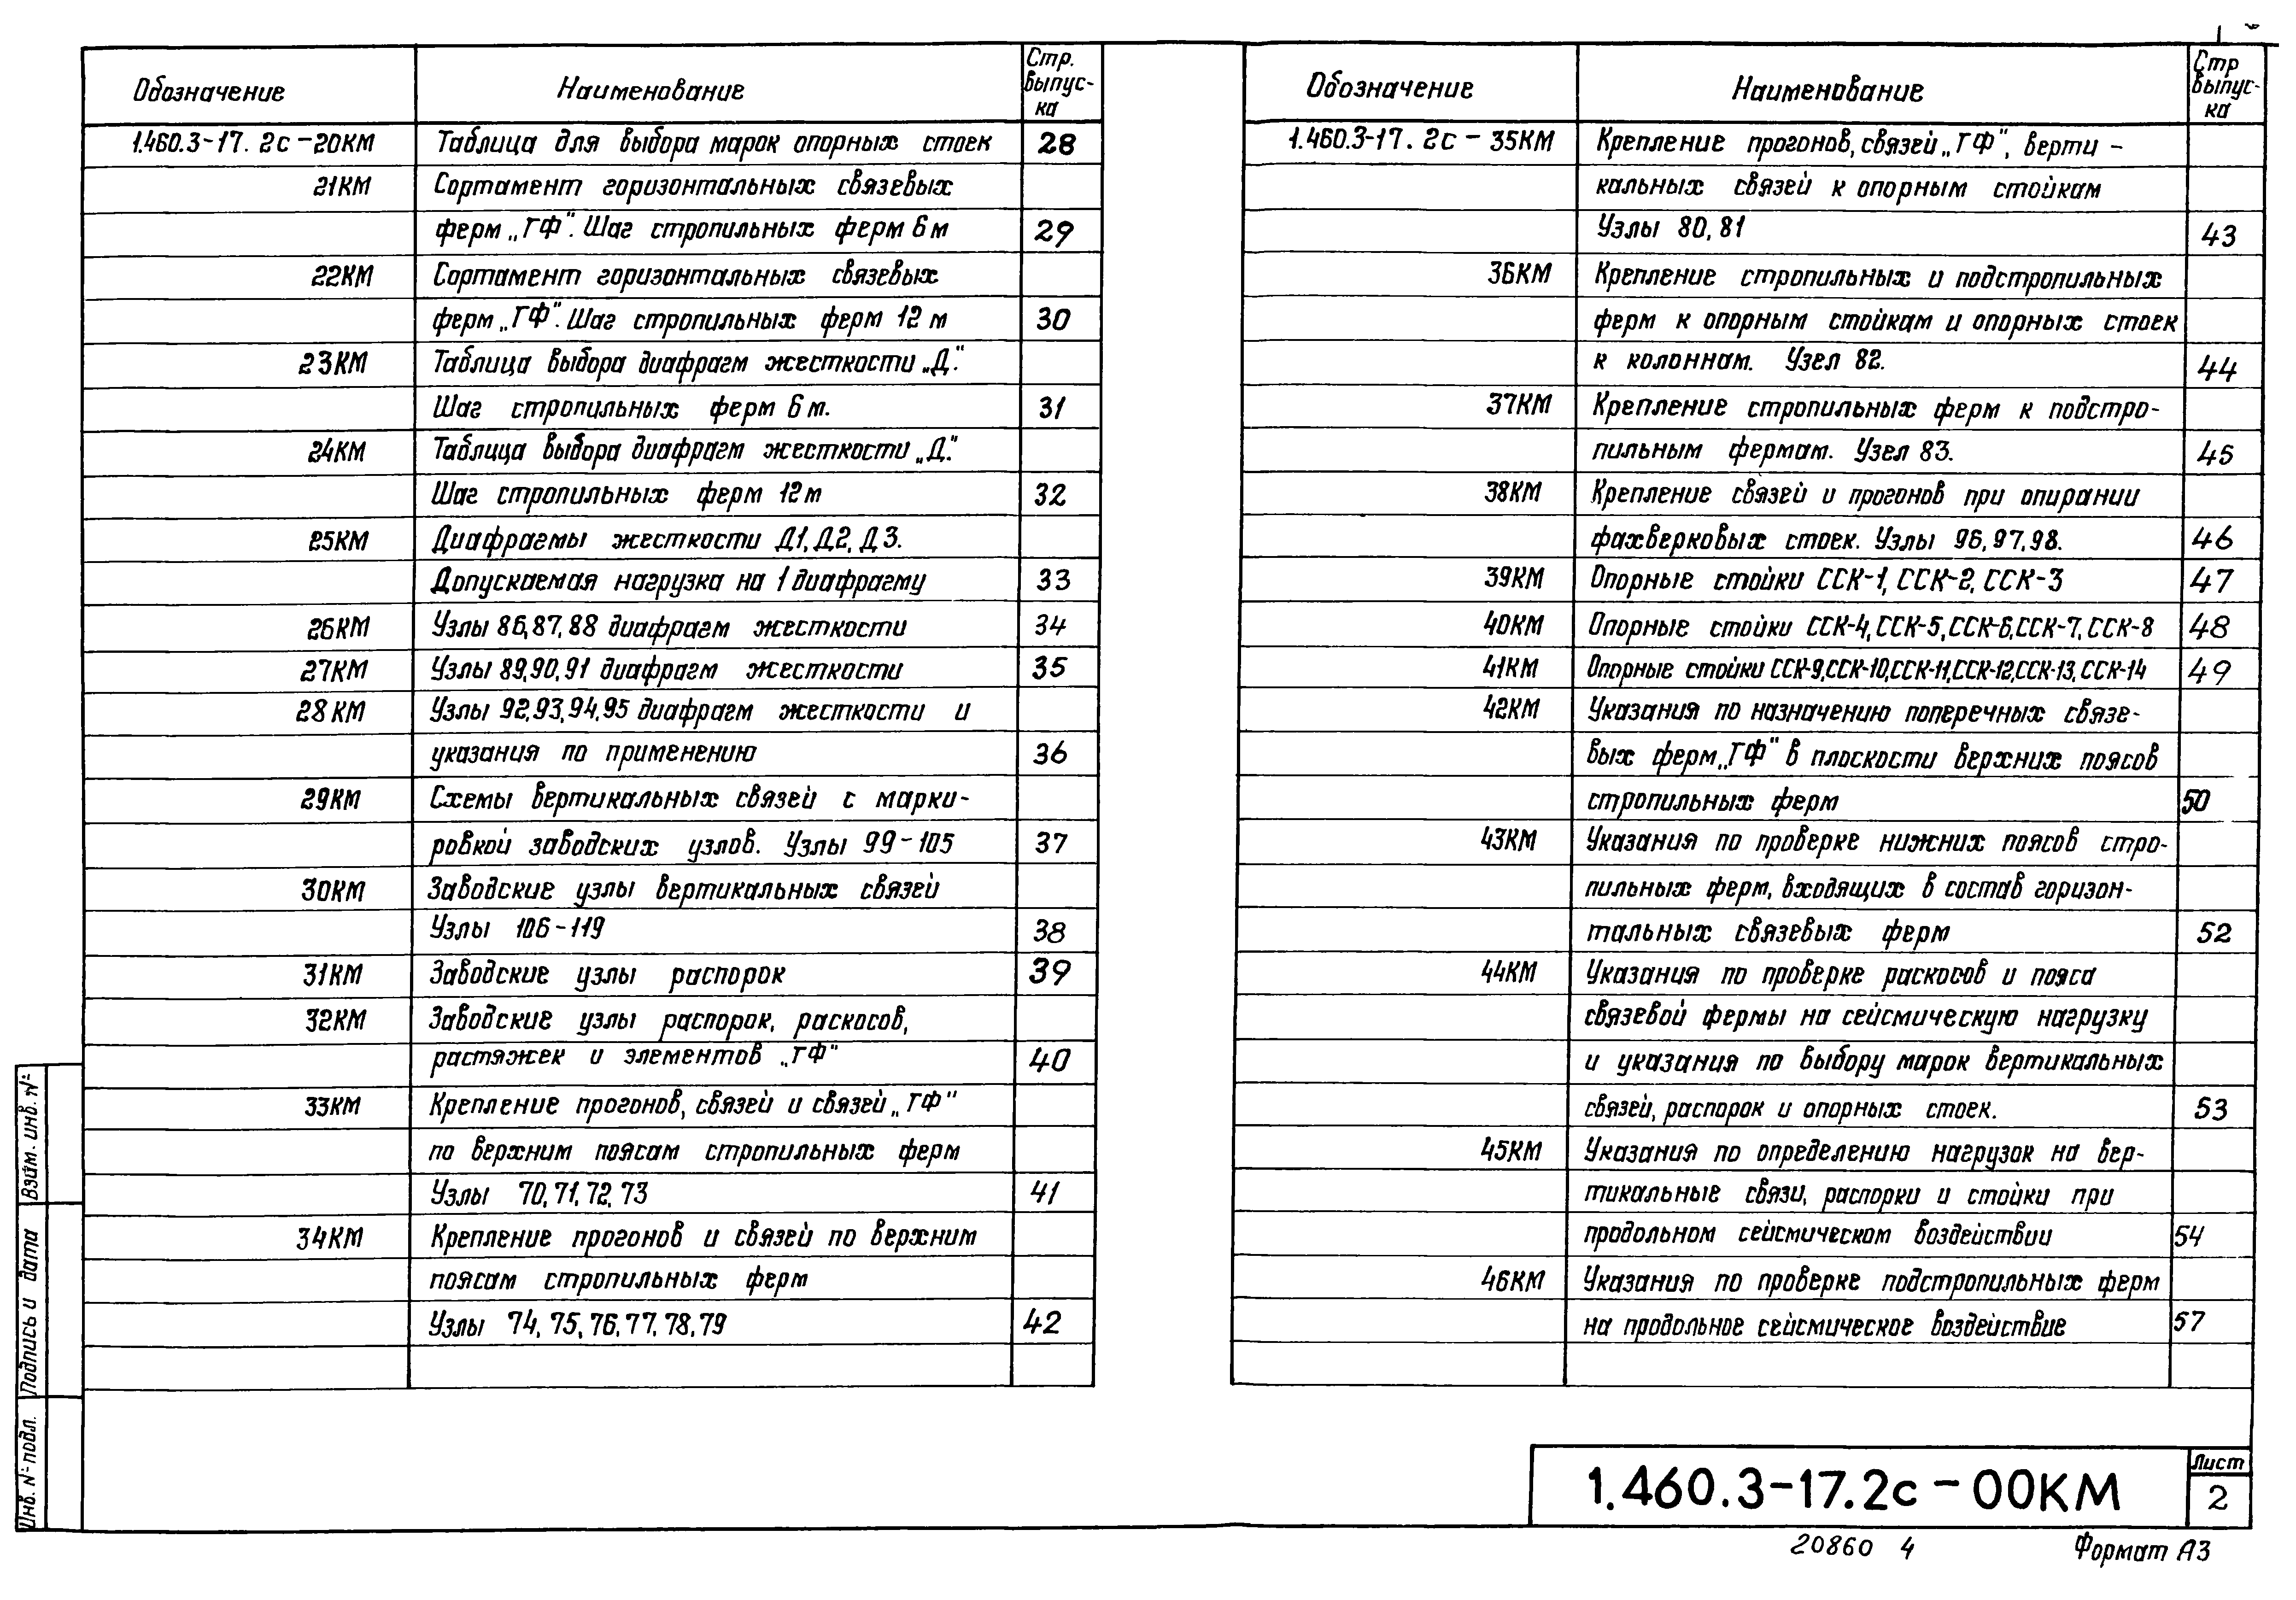 Обозначение Наименование Стр. выпус-ка
1.460.3-17.2с-20КМ Таблица для выбора марок опорных стоек 28
21КМ Сортамент горизонтальных связевых
ферм „ГФ". Шаг стропильных ферм 6 м 29
22КМ Сортамент горизонтальных связевых
ферм „ГФ". Шаг стропильных ферм 12 м 30
23КМ Таблица выбора диафрагм жесткости „Д".
Шаг стропильных ферм 6 м. 31
24КМ Таблица выбора диафрагм жесткости „Д".
Шаг стропильных ферм 12 м 32
25КМ Диафрагмы жесткости Д1, Д2, Д3.
Допускаемая нагрузка на 1 диафрагму 33
26КМ Узлы 86,87,88 диафрагм жесткости 34
27КМ Узлы 89,90,91 диафрагм жесткости 35
28КМ Узлы 92,93,94,95 диафрагм жесткости и
указания по применению 36
29КМ Схемы вертикальных связей с марки-
ровкой заводских узлов. Узлы 99-105 37
30КМ Заводские узлы вертикальных связей
Узлы 106-119 38
31КМ Заводские узлы распорок 39
32КМ Заводские узлы распорок, раскосов,
растяжек и элементов „ГФ" 40
33КМ Крепление прогонов, связей и связей „ГФ"
по верхним поясам стропильных ферм
Узлы 70,71,72,73 41
34КМ Крепление прогонов и связей по верхним
поясам стропильных ферм
Узлы 74,75,76,77,78,79 42
Обозначение Наименование Стр выпус-ка
1.460.3-17.2с-35КМ Крепление прогонов, связей „ГФ", верти-
кальных связей к опорным стойкам
Узлы 80,81 43
36КМ Крепление стропильных и подстропильных
ферм к опорным стойкам и опорных стоек
к колоннам. Узел 82. 44
37КМ Крепление стропильных ферм к подстро-
пильным фермам. Узел 83. 45
38КМ Крепление связей и прогонов при опирании
фахверковых стоек. Узлы 96,97,98. 46
39КМ Опорные стойки ССК-1, ССК-2, ССК-3 47
40КМ Опорные стойки ССК-4, ССК-5, ССК-6, ССК-7, ССК-8 48
41КМ Опорные стойки ССК-9, ССК-10, ССК-11, ССК-12, ССК-13, ССК-14 49
42КМ Указания по назначению поперечных связе-
вых ферм „ГФ" в плоскости верхних поясов
стропильных ферм 50
43КМ Указания по проверке нижних поясов стро-
пильных ферм, входящих в состав горизон-
тальных связевых ферм 52
44КМ Указания по проверке раскосов и пояса
связевой фермы на сейсмическую нагрузку
и указания по выбору марок вертикальных
связей, распорок и опорных стоек. 53
45КМ Указания по определению нагрузок на вер-
тикальные связи, распорки и стойки при
продольном сейсмическом воздействии 54
46КМ Указания по проверке подстропильных ферм
на продольное сейсмическое воздействие 57
Взам. инв. №
Подпись и дата
Инв. № подл.
1.460.3-17.2с-00КМ
Лист
2
20860 4 Формат А3